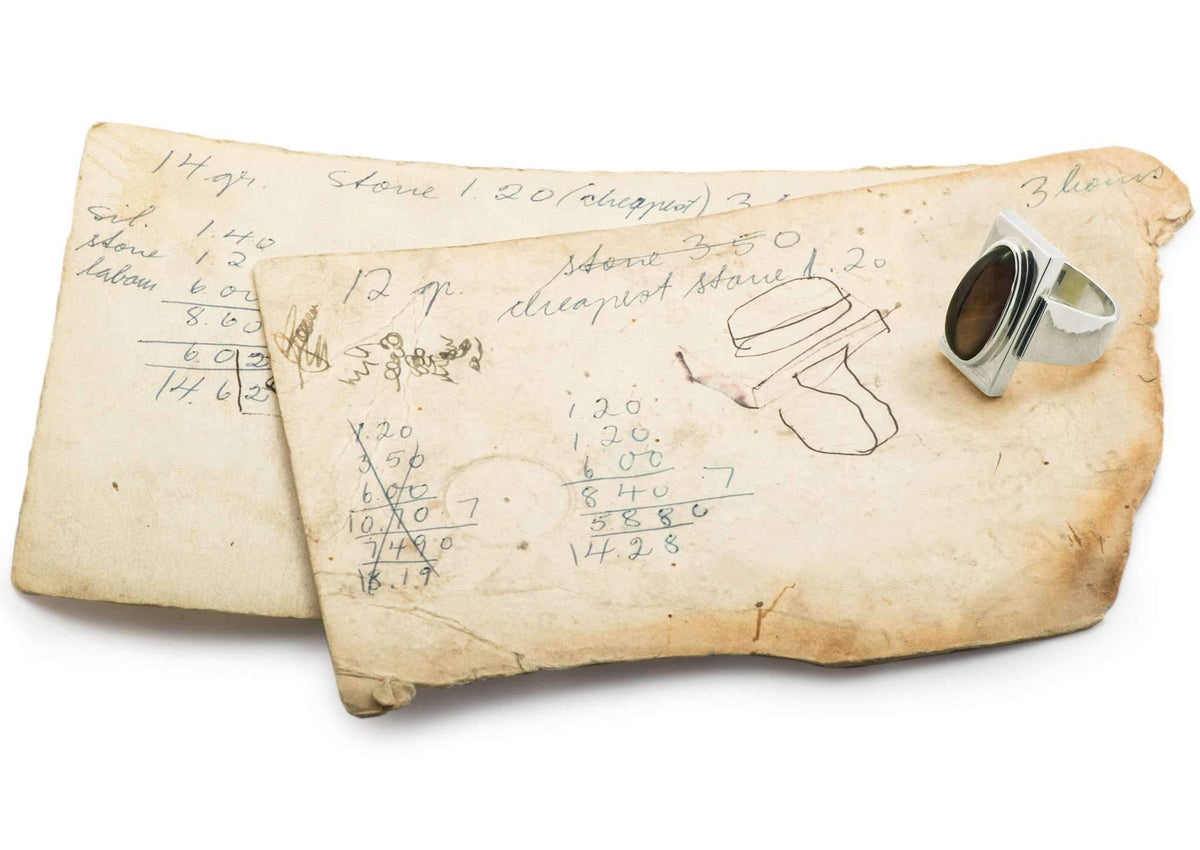 14 gr. Stone 1.20 (cheapest) 3
sil. 1.40
stone 1.2
labour 6.00
8.60
6.02
14.62
3 hours
stone 350
12 gr. cheapest stone 1.20
1.20
3 50
6.00
10.70 7
7490
18.19
1.20
1.20
6 00
8 40 .7
5 8 8 0
14.28